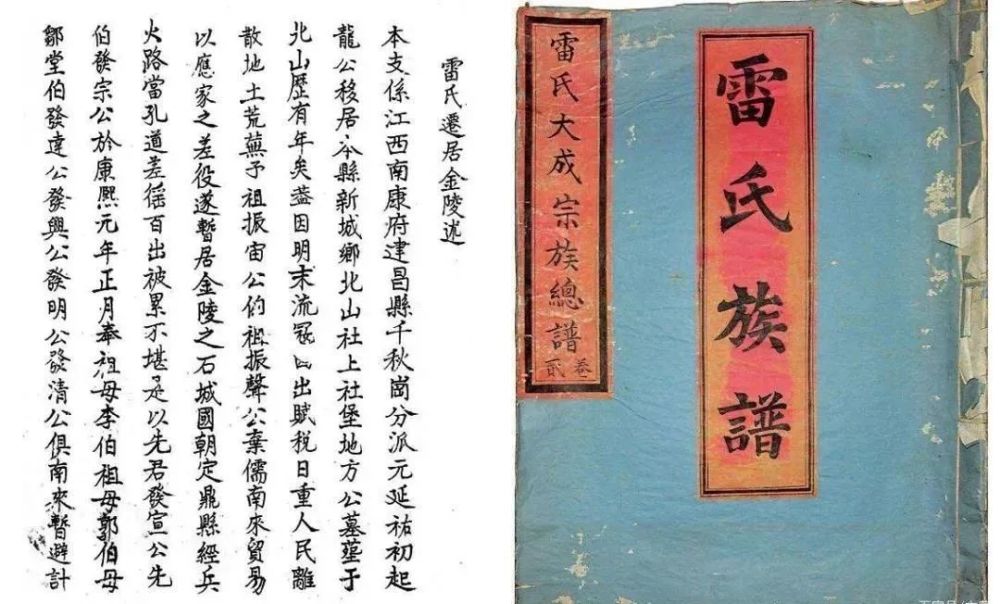 雷氏遷居金陵述
本支係江西南康府建昌縣千秋崗分派元延祐初起
龍公移居夲縣新城鄉北山社上社堡地方公墓塋于
北山歷有年矣蓋因明末流寇四出賦税日重人民離
散地土荒蕪予祖振宙公伯祖振聲公棄儒南來貿易
以應家之差役遂暫居金陵之石城國朝定鼎縣經兵
火路當孔道差徭百出被累不堪是以先君發宣公先
伯發宗公於康熙元年正月奉祖母李伯祖母郭伯母
鄒堂伯發達公發興公發明公發清公俱南來暫避計
雷氏族譜
雷氏大成宗族總譜
卷貳